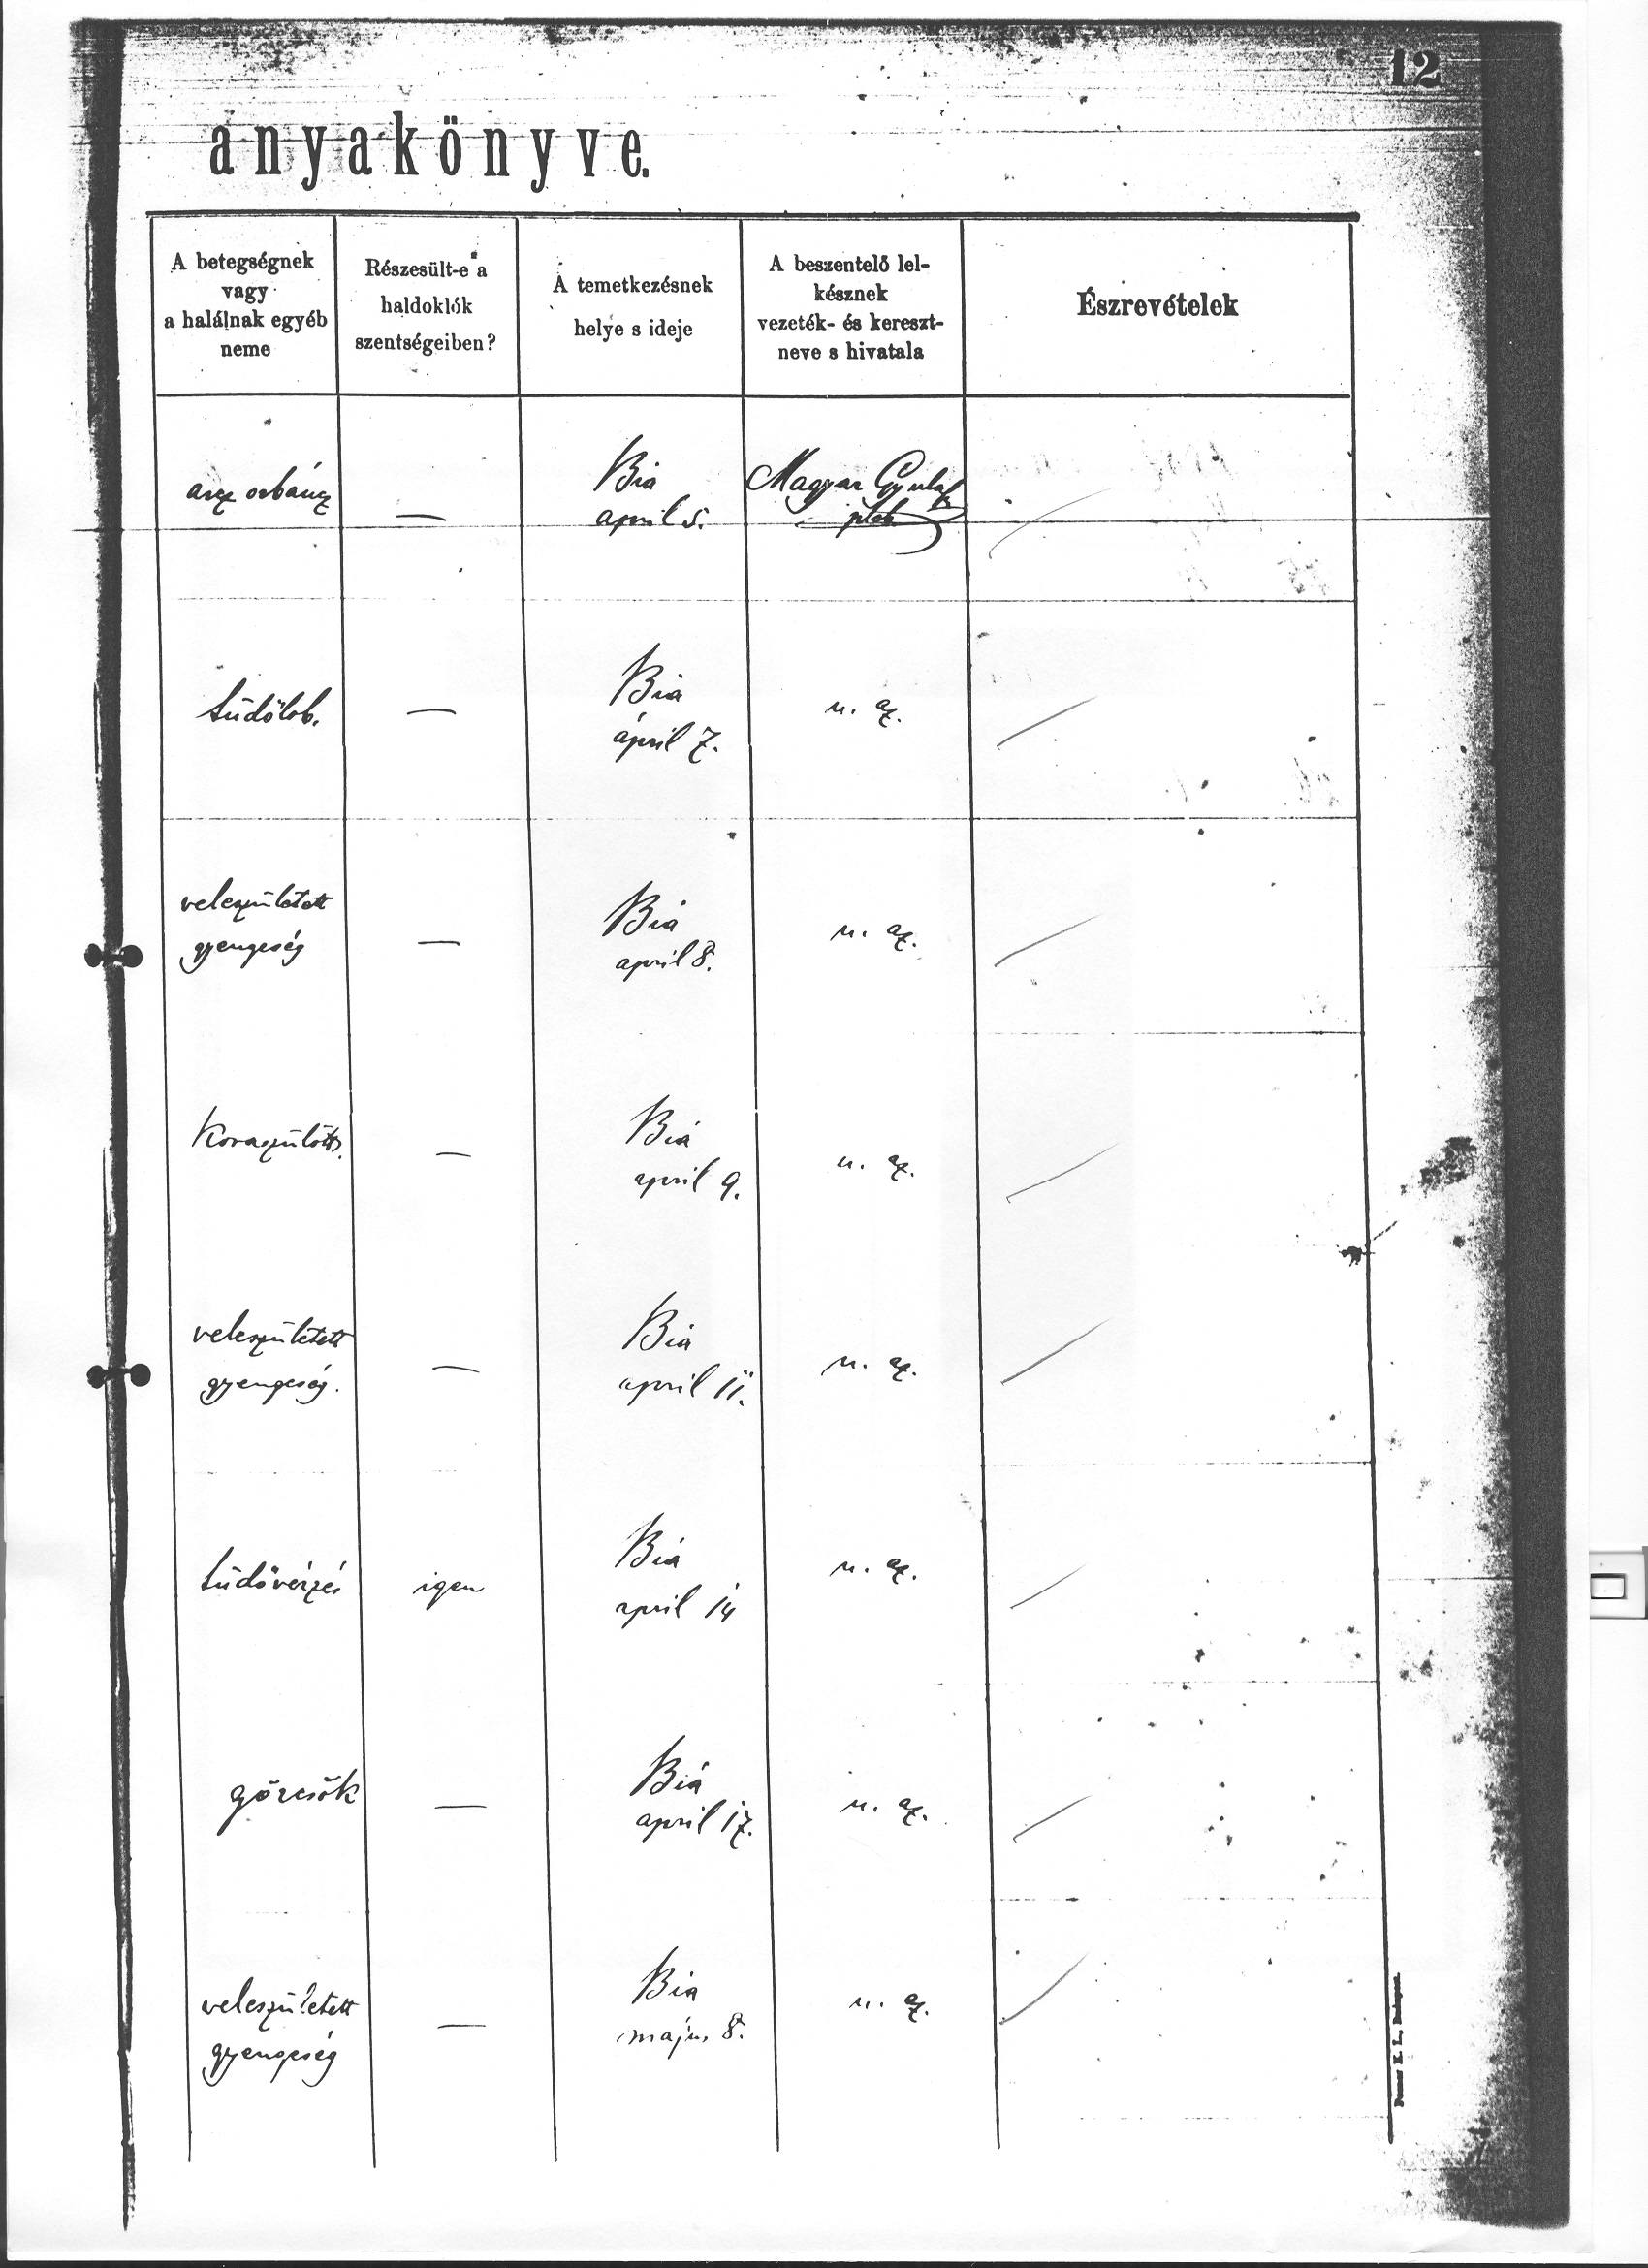 12
anyakönyve.
A betegségnek
vagy
a halálnak egyéb
neme
Részesült-e a
haldoklók
szentségeiben?
A temetkezésnek
helye s ideje
A beszentelő lel-
késznek
vezeték- és kereszt-
neve s hivatala
Észrevételek
arcz orbáncz
—
Bia
april 5.
Magyar Gyula
pleb
tüdőlob.
—
Bia
ápril 7.
u. az.
veleszületett
gyengeség
—
Bia
april 8.
u. az.
Koraszülött.
—
Bia
april 9.
u. az.
veleszületett
gyengeség.
—
Bia
april 11.
u. az.
tüdővérzés
igen
Bia
april 14
u. az.
görcsök
—
Bia
april 17.
u. az.
veleszületett
gyengeség
—
Bia
május 8.
u. az.